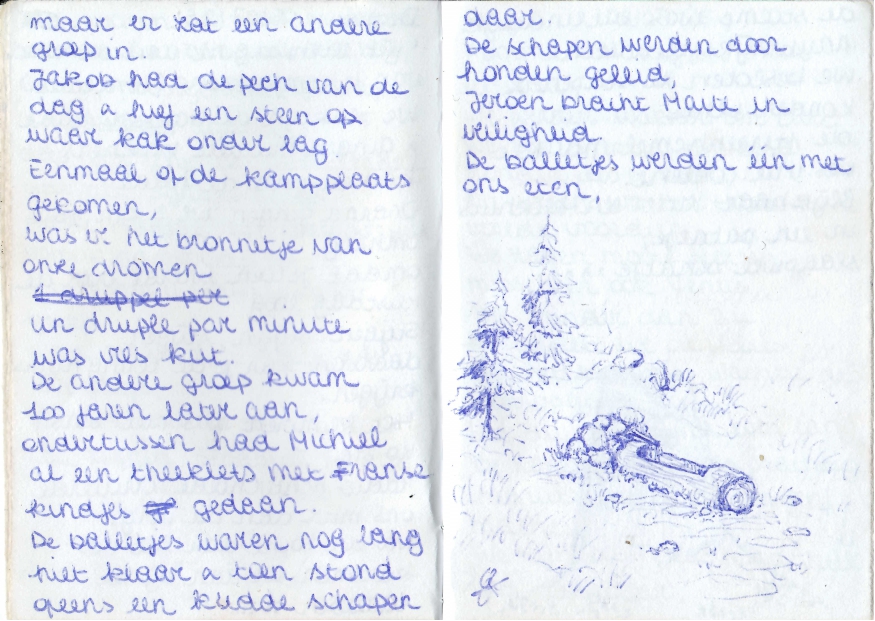 maar er zat een andere
groep in.
Jakob had de pech van de
dag & hief een steen op
waar kak onder lag
Eenmaal op de kampplaats
gekomen,
was er het bronnetje van
onze dromen
1 druppel per
un druple par minute
was vies kut.
De andere groep kwam
100 jaren later aan
ondertussen had Michiel
al een theekiets met Franse
kindjes gedaan
De balletjes waren nog lang
niet klaar & toen stond
opeens een kudde schapen
daar
De schapen werden door
honden geleid,
Jeroen bracht Maite in
veiligheid.
De balletjes werden een met
ons eten